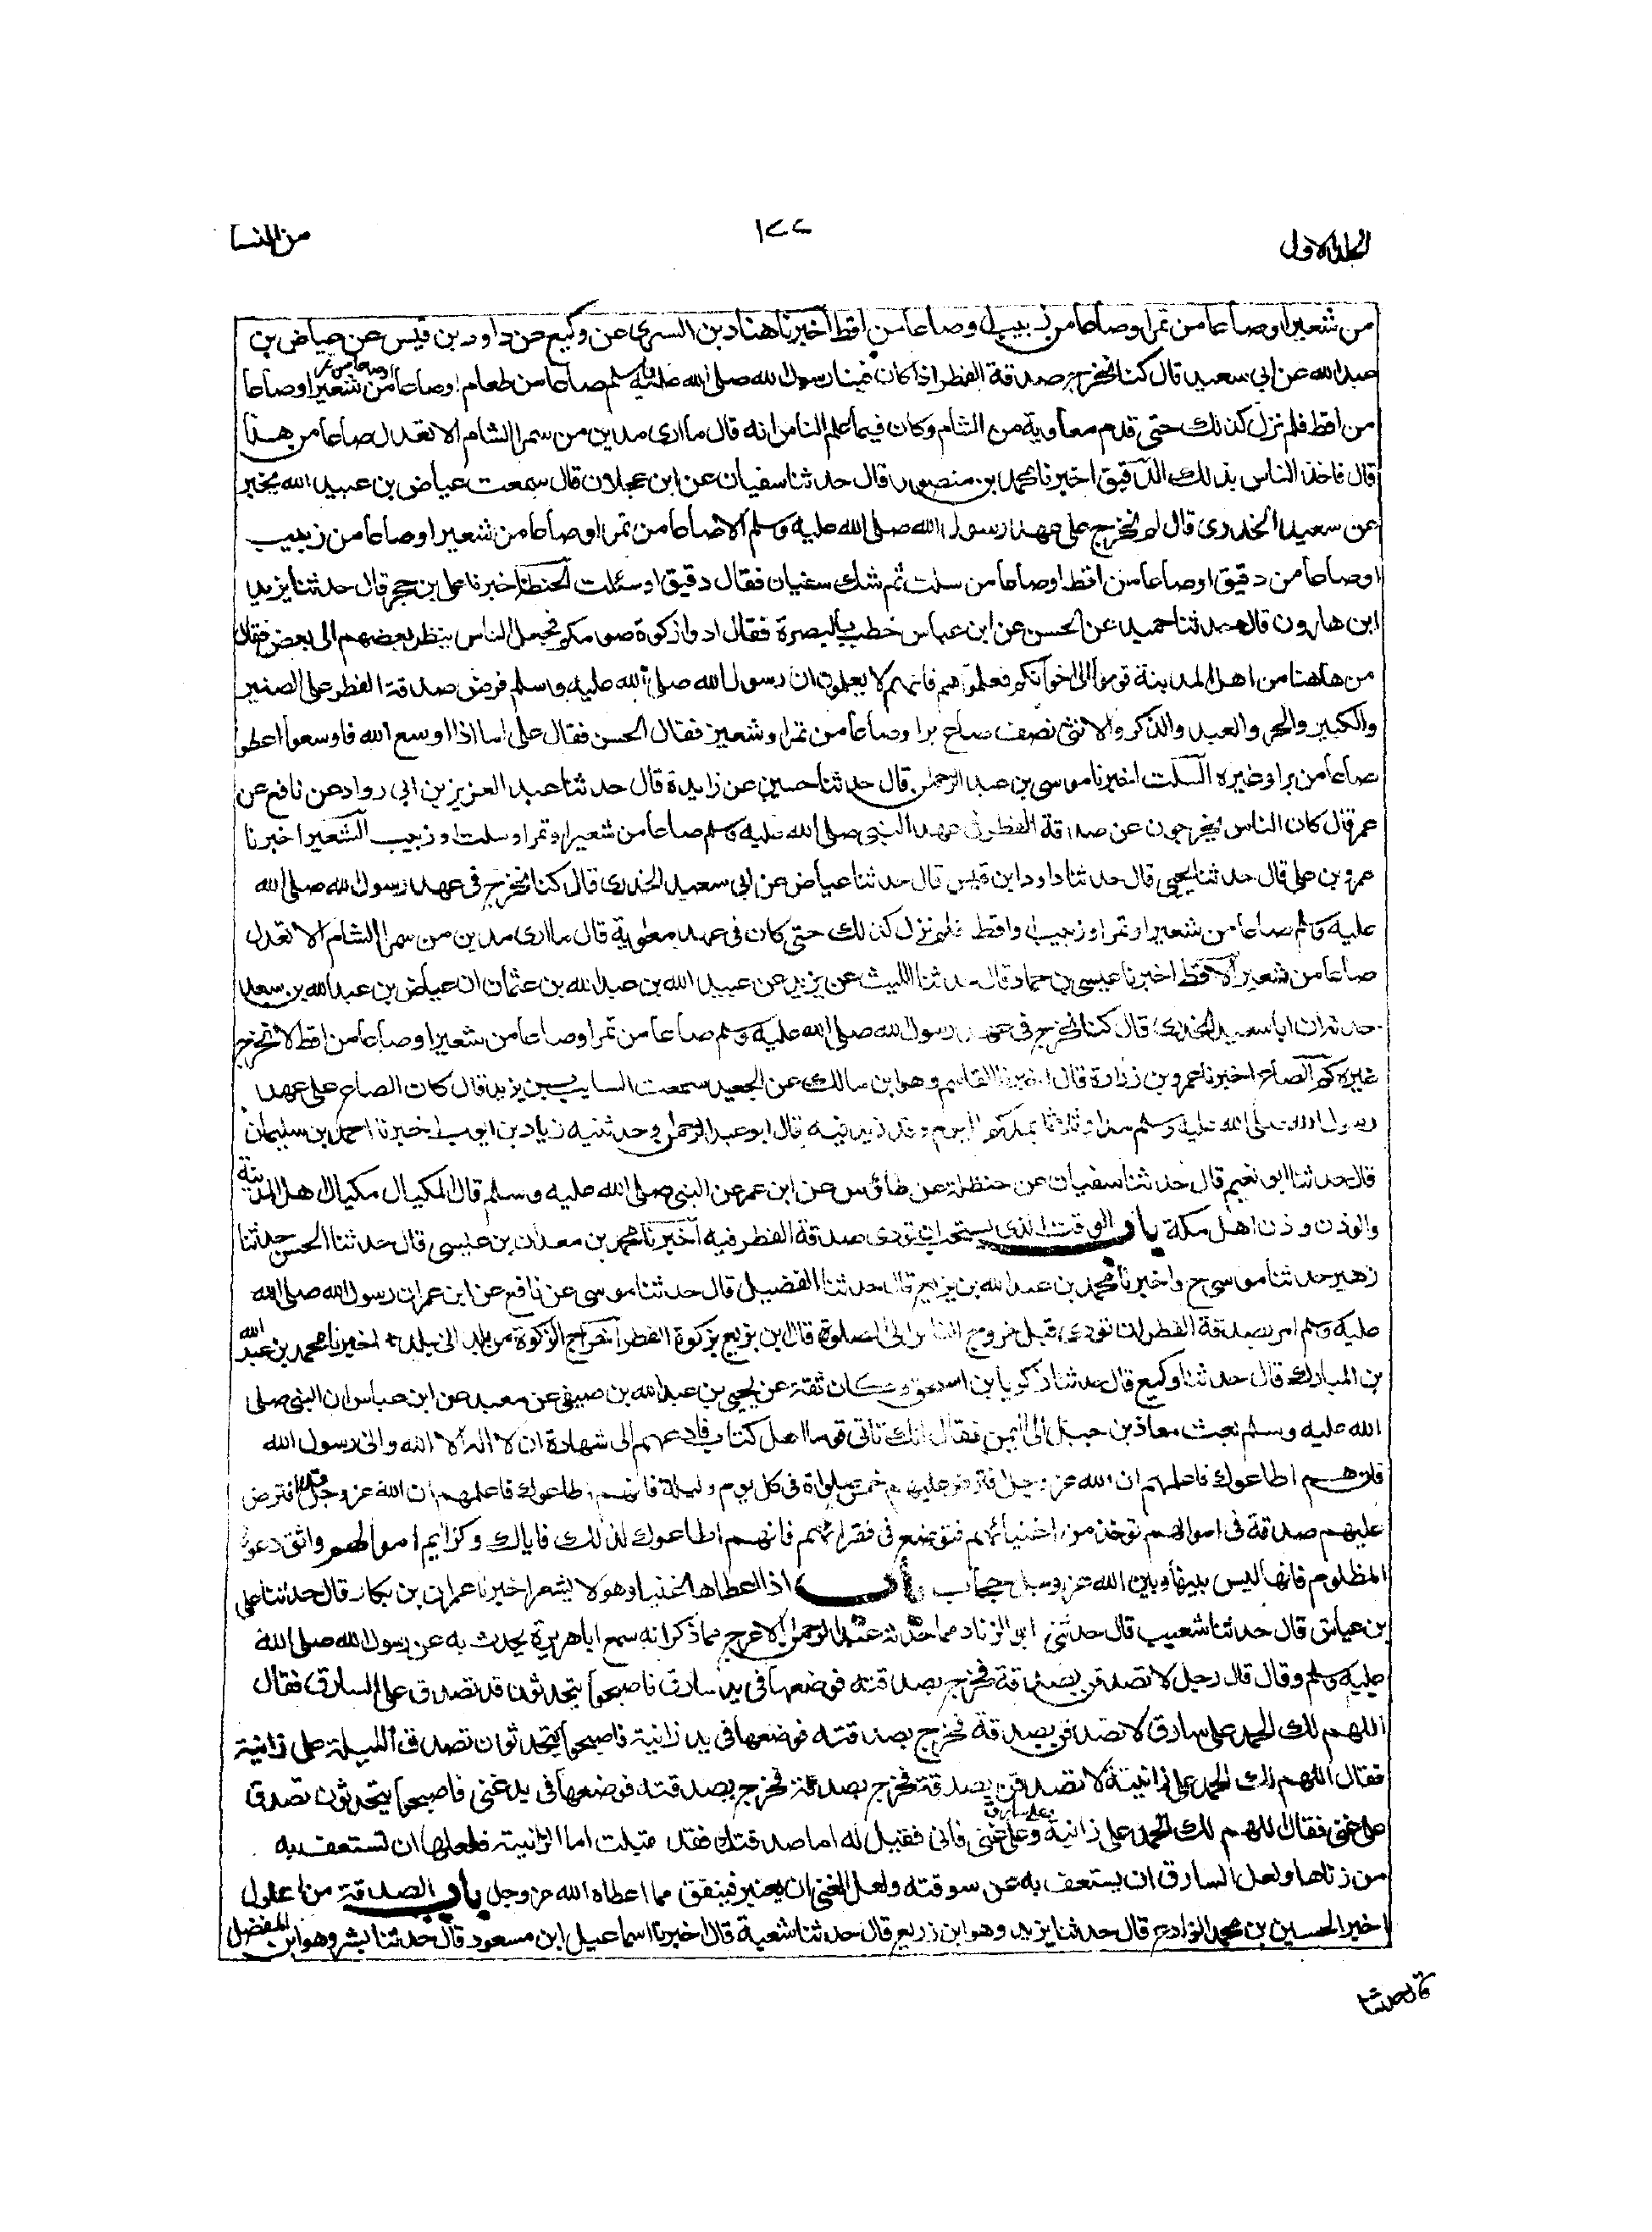 الجلد الاول
١٧٧
من النسا
من شعيرا وصاعا من تمرا وصاعا من زبيب او صاعا من اقط اخبرنا هناد بن السرى عن وكيع عن داود بن قيس عن عياض بن
عبد الله عن ابي سعيد قال كنا نخرج صدقة الفطر اذا كان فينا رسول الله صلى الله عليه وسلم صاعا من طعام او صاعا من شعير او صاعا من تمر او صاعا
من اقط فلم نزل كذلك حتى قدم معاوية من الشام وكان فيما علم الناس انه قال ما ارى مدين من سمرا الشام الا تعدل صاعا من هذا
قال فاخذ الناس بذلك الدقيق اخبرنا محمد بن منصور قال حدثنا سفيان عن ابن عجلان قال سمعت عياض بن عبيد الله يخبر
عن سعيد الخدرى قال لم نخرج على عهد رسول الله صلى الله عليه وسلم الا صاعا من تمر او صاعا من شعير او صاعا من زبيب
او صاعا من دقيق او صاعا من اقط او صاعا من سلت ثم شك سفيان فقال دقيق او سئلت الحنطة اخبرنا على بن حجر قال حدثنا يزيد
ابن هارون قال حدثنا حميد عن الحسن عن ابن عباس خطب بالبصرة فقال ادوا زكوة صومكم فجعل الناس ينظر بعضهم الى بعض فقال
من هاهنا من اهل المدينة قوموا الى اخوانكم فعلموهم فانهم لا يعلمون ان رسول الله صلى الله عليه وسلم فرض صدقة الفطر على الصغير
والكبير والحر والعبد والذكر والانثى نصف صاع بر او صاعا من تمر او شعير فقال الحسن فقال على اما اذا اوسع الله فاوسعوا اعطوا
صاعا من بر او غيره السلت اخبرنا موسى بن عبد الرحمن قال حدثنا حسين عن زايدة قال حدثنا عبد العزيز بن ابى رواد عن نافع عن
عمر قال كان الناس يخرجون عن صدقة الفطر فى عهد النبى صلى الله عليه وسلم صاعا من شعير او تمر او سلت او زبيب الشعير اخبرنا
عمرو بن على قال حدثنا يحيى قال حدثنا داود ابن قيس قال حدثنا عياض عن ابى سعيد الخدرى قال كنا نخرج فى عهد رسول الله صلى الله
عليه وسلم صاعا من شعير او تمر او زبيب او اقط فلم نزل كذلك حتى كان فى عهد معاوية قال ما ارى مدين من سمرا الشام الا تعدل
صاعا من شعير الاقط اخبرنا عيسى بن حماد قال حدثنا الليث عن يزيد عن عبيد الله بن عبد الله بن عثمان ان عياض بن عبد الله بن سعد
حدثه ان ابا سعيد الخدرى قال كنا نخرج فى عهد رسول الله صلى الله عليه وسلم صاعا من تمر او صاعا من شعير او صاعا من اقط لا نخرج
غيره كم الصاع اخبرنا عمرو بن زرارة قال اخبرنا القاسم وهو ابن مالك عن الجعيد سمعت السايب بن يزيد قال كان الصاع على عهد
رسول الله صلى الله عليه وسلم مدا وثلثا بمدكم اليوم وقد زيد فيه قال ابو عبد الرحمن وحدثنيه زياد بن ايوب اخبرنا احمد بن سليمان
قال حدثنا ابو نعيم قال حدثنا سفيان عن حنظلة عن طاؤس عن ابن عمر عن النبى صلى الله عليه وسلم قال المكيال مكيال اهل المدينة
والوزن وزن اهل مكة باب الوقت الذى يستحب ان تودى صدقة الفطر فيه اخبرنا محمد بن معدان بن عيسى قال حدثنا الحسن حدثنا
زهير حدثنا موسى ح واخبرنا محمد بن عبد الله بن بزيع قال حدثنا الفضيل قال حدثنا موسى عن نافع عن ابن عمر ان رسول الله صلى الله
عليه وسلم امر بصدقة الفطر ان تودى قبل خروج الناس الى الصلوة قال ابن بزيع بزكوة الفطر اخراج الزكوة من بلد الى بلد اخبرنا محمد بن عبد الله
بن المبارك قال حدثنا وكيع قال حدثنا زكريا بن اسحق وكان ثقة عن يحيى بن عبد الله بن صيفى عن معبد عن ابن عباس ان النبى صلى
الله عليه وسلم بعث معاذ بن جبل الى اليمن فقال انك تاتى قوما اهل كتاب فادعهم الى شهادة ان لا اله الا الله وانى رسول الله
فان هم اطاعوك فاعلمهم ان الله عز وجل افترض عليهم خمس صلواة فى كل يوم وليلة فان هم اطاعوك فاعلمهم ان الله عز وجل قد افترض
عليهم صدقة فى اموالهم توخذ من اغنيائهم فتوضع فى فقرائهم فانهم اطاعوك لذلك فاياك وكرايم اموالهم واتق دعوة
المظلوم فانها ليس بينها وبين الله عز وجل حجاب باب اذا اعطاها غنيا وهو لا يشعر اخبرنا عمران بن بكار قال حدثنا على
بن عياش قال حدثنا شعيب قال حدثنى ابو الزناد مما حدثه عبد الرحمن الاعرج مما ذكر انه سمع ابا هريرة يحدث به عن رسول الله صلى الله
عليه وسلم وقال قال رجل لا تصدقن بصدقة فخرج بصدقته فوضعها فى يد سارق فاصبحوا يتحدثون قد تصدق على السارق فقال
اللهم لك الحمد على سارق لا تصدقن بصدقة فخرج بصدقته فوضعها فى يد زانية فاصبحوا يتحدثون تصدق الليلة على زانية
فقال اللهم لك الحمد على زانية لا تصدقن بصدقة فخرج بصدقة فخرج بصدقته فوضعها فى يد غنى فاصبحوا يتحدثون تصدق
على غنى فقال اللهم لك الحمد على زانية وعلى سارق وعلى غنى فاتى فقيل له اما صدقتك فقد تقبلت اما الزانية فلعلها ان تستعف به
من زناها ولعل السارق ان يستعف به عن سرقته ولعل الغنى ان يعتبر فينفق مما اعطاه الله عز وجل باب الصدقة من غلول
اخبرنا الحسين بن محمد الذارع قال حدثنا يزيد وهو ابن زريع قال حدثنا شعبة قال اخبرنا اسماعيل ابن مسعود قال حدثنا بشر وهو ابن المفضل
قال حدثنا